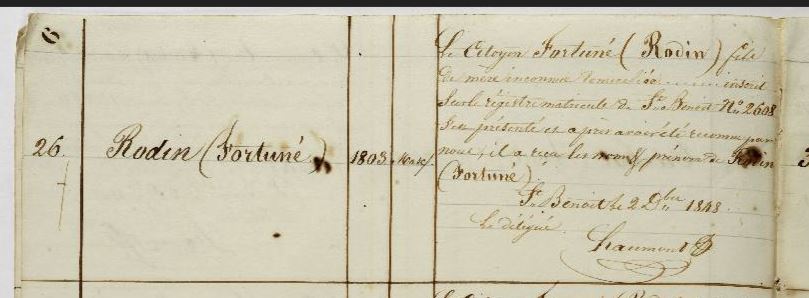 6
26.
Rodin (Fortuné)
1803
Le Citoyen Fortuné (Rodin) fils
de mère inconnue inscrit
sur le régistre matricule de St. Benoit No. 2608
S'est présenté et après avoir été reconnu par
nous, il a reçu les nom & prénom de Rodin
(Fortuné)
St. Benoit le 2 Dbre 1848.
Le délégué.
Chaumont
3